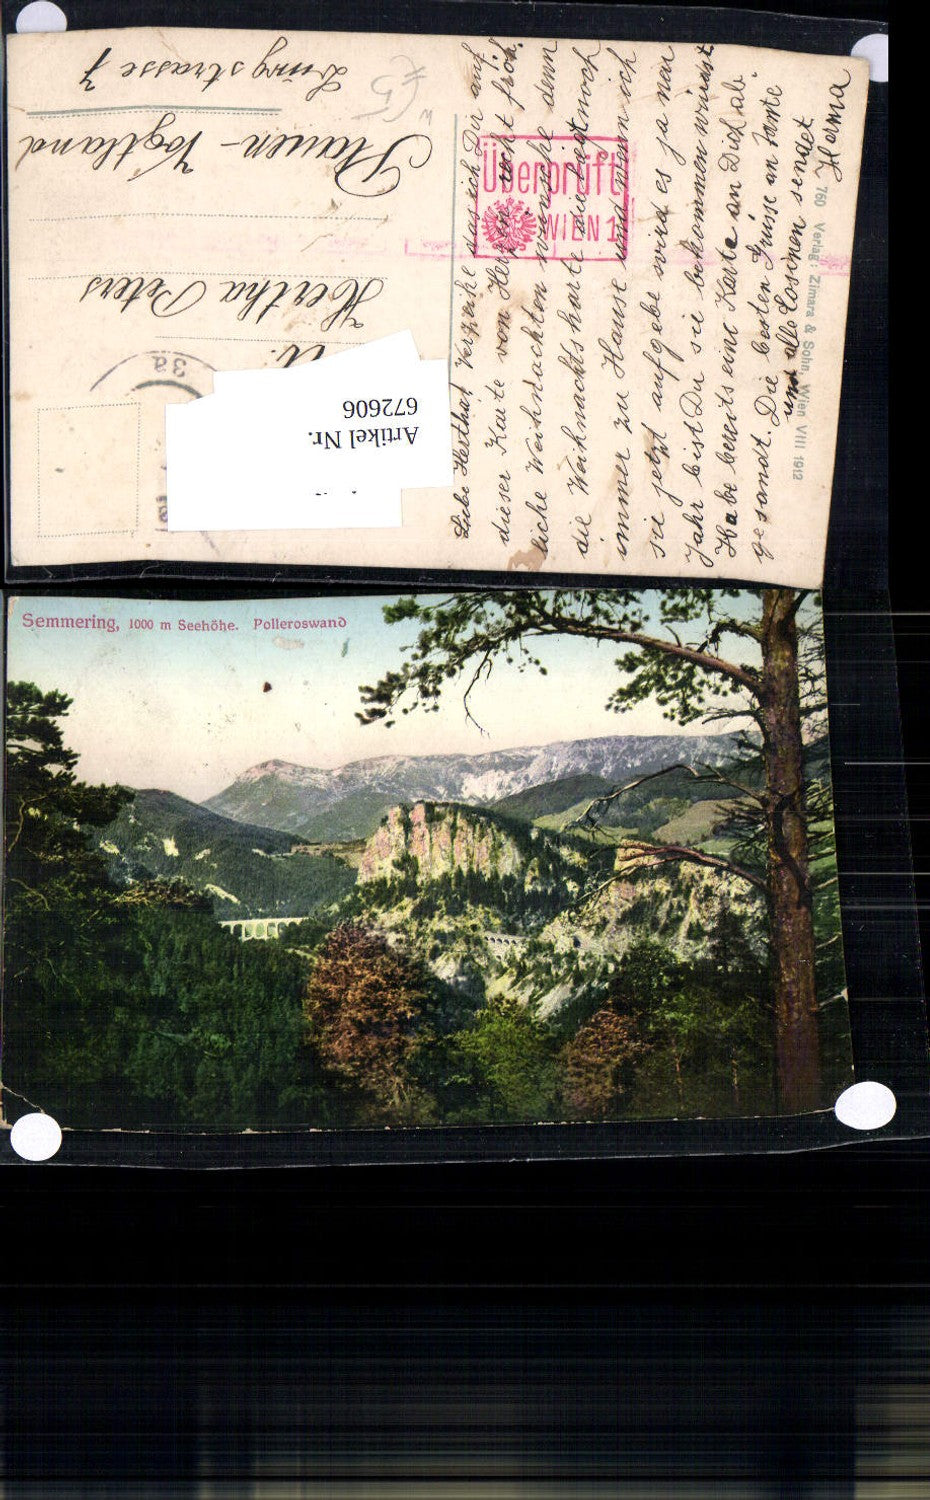 Zürngstrasse 7
Plauen - Vogtland
Hertha Peters
Artikel Nr.
672606
3a
Überprüft
WIEN 1
760 Verlag: Zimara & Sohn, Wien VIII 1912
Liebe Hertha! Verzeihe das ich Dir auf
dieser Karte von Herzen recht fröh-
liche Weihnachten wünsche denn
die Weihnachtskarte die liegt noch
immer zu Hause und wenn ich
sie jetzt aufgebe wird es ja nen
Jahr bist Du sie bekommen wirdst.
Habe bereits eine Karte an Dich ab-
gesandt. Die besten Grüsse an Tante
und alle Cosinen sendet
Herma
Semmering, 1000 m Seehöhe. Polleroswand